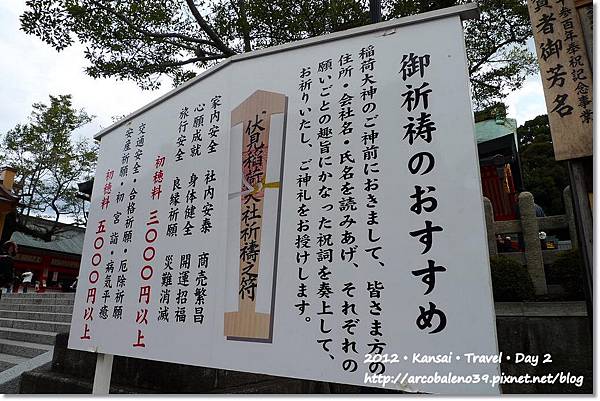 御祈祷のおすすめ
稲荷大神のご神前におきまして、皆さま方の
住所・会社名・氏名を読みあげ、それぞれの
願いごとの趣旨にかなった祝詞を奏上して、
お祈りいたし、ご神礼をお授けします。
伏見稲荷大社祈祷之符
家内安全 社内安泰 商売繁昌
心願成就 身体健全 開運招福
旅行安全 良縁祈願 災難消滅
初穂料 三〇〇〇円以上
交通安全・合格祈願・厄除祈願
安産祈願・初宮詣・病気平癒
初穂料 五〇〇〇円以上
百年奉祝記念事業
賛者御芳名
2012・Kansai・Travel・Day 2
http://arcobaleno39.pixnet.net/blog